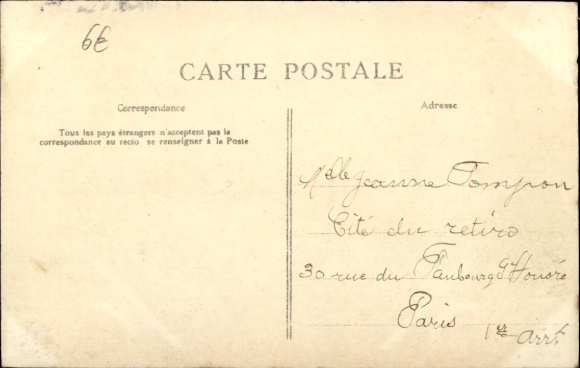 6€
CARTE POSTALE
Correspondance
Tous les pays étrangers n'acceptent pas la
correspondance au recto, se renseigner à la Poste
Adresse
Mdlle Jeanne Pompon
Cité du retiro
30 rue du Faubourg St Honoré
Paris
1er Arrt